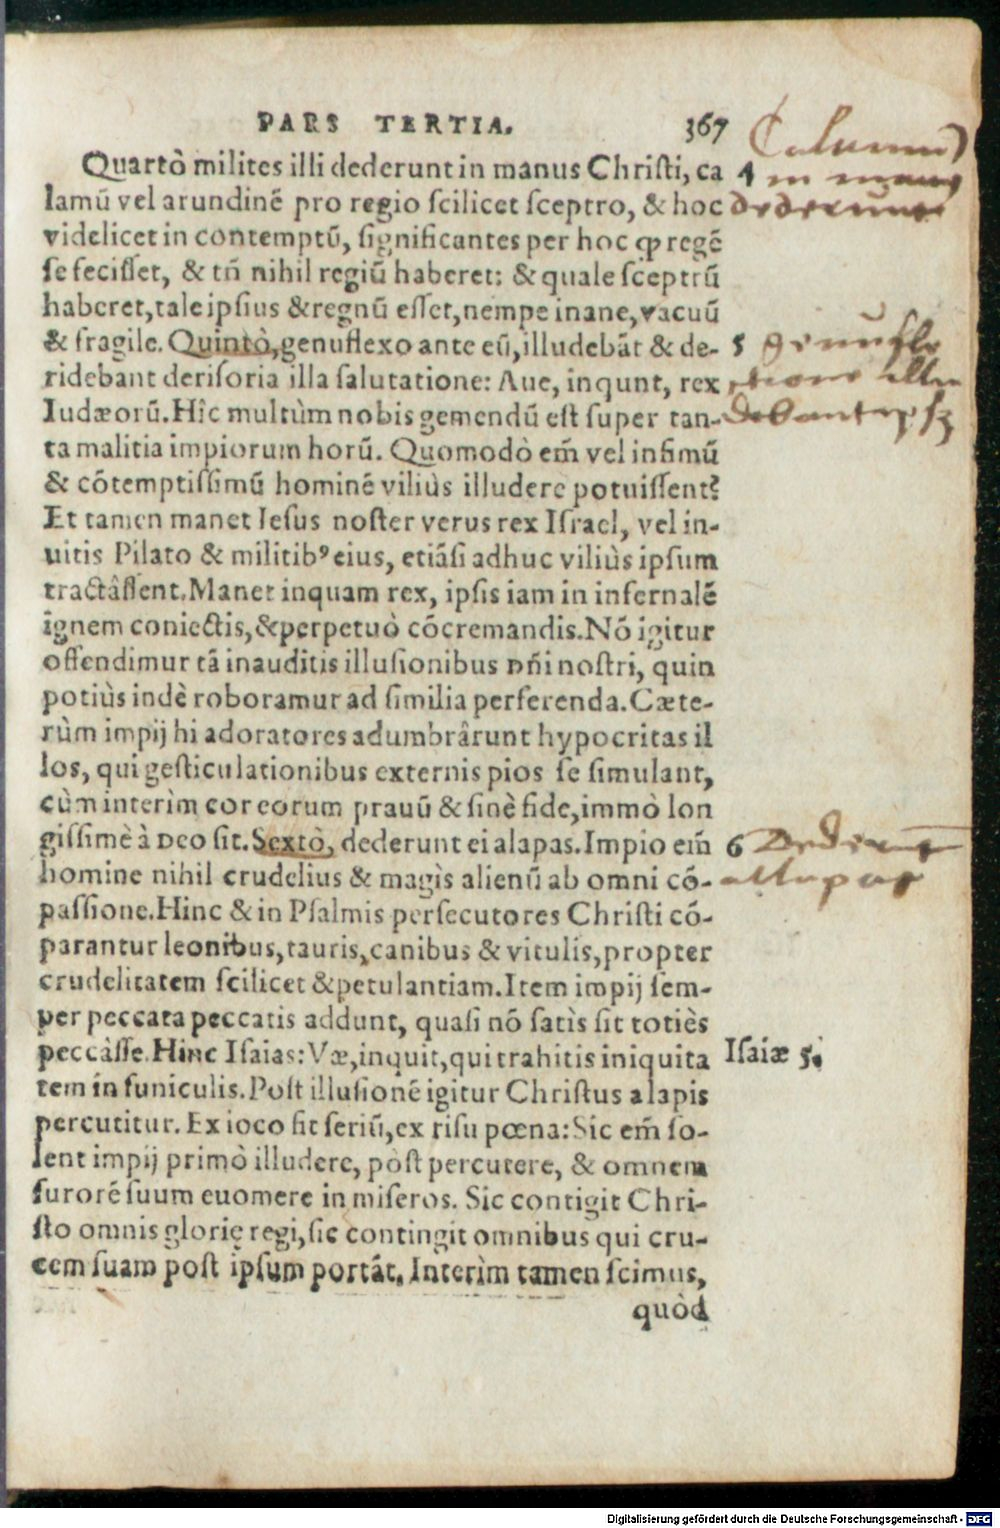 PARS TERTIA. 367
Quartò milites illi dederunt in manus Christi, ca
lamū vel arundinē pro regio scilicet sceptro, & hoc
videlicet in contemptū, significantes per hoc ꝙ regē
se fecisset, & tñ nihil regiū haberet: & quale sceptrū
haberet, tale ipsius & regnū esset, nempe inane, vacuū
& fragile. Quintò, genuflexo ante eū, illudebāt & de-
ridebant derisoria illa salutatione: Aue, inqunt, rex
Iudæorū. Hîc multùm nobis gemendū est super tan-
ta malitia impiorum horū. Quomodò em̄ vel infimū
& cōtemptissimū hominē viliùs illudere potuissent?
Et tamen manet Iesus noster verus rex Israel, vel in-
uitis Pilato & militibꝰ eius, etiāsi adhuc viliùs ipsum
tractâssent. Manet inquam rex, ipsis iam in infernalē
ignem coniectis, & perpetuò cōcremandis. Nō igitur
offendimur tā inauditis illusionibus Dn̄i nostri, quin
potiùs indè roboramur ad similia perferenda. Cæte-
rùm impij hi adoratores adumbrârunt hypocritas il
los, qui gesticulationibus externis pios se simulant,
cùm interìm cor eorum prauū & sinè fide, immò lon
gissimè à Deo sit. Sextò, dederunt ei alapas. Impio em̄
homine nihil crudelius & magìs alienū ab omni cō-
passione. Hinc & in Psalmis persecutores Christi cō-
parantur leonibus, tauris, canibus & vitulis, propter
crudelitatem scilicet & petulantiam. Item impij sem-
per peccata peccatis addunt, quasi nō satìs sit totiès
peccâsse. Hinc Isaias: Væ, inquit, qui trahitis iniquita
tem in funiculis. Post illusionē igitur Christus alapis
percutitur. Ex ioco fit seriū, ex risu pœna: Sic em̄ so-
lent impij primò illudere, pòst percutere, & omnem
furorē suum euomere in miseros. Sic contigit Chri-
sto omnis glorię regi, sic contingit omnibus qui cru-
cem suam post ipsum portāt. Interìm tamen scimus,
quòd
4
in manus
dederunt
5 genufle
6 Dederunt
allapas
Isaiæ 5.
Digitalisierung gefördert durch die Deutsche Forschungsgemeinschaft - DFG